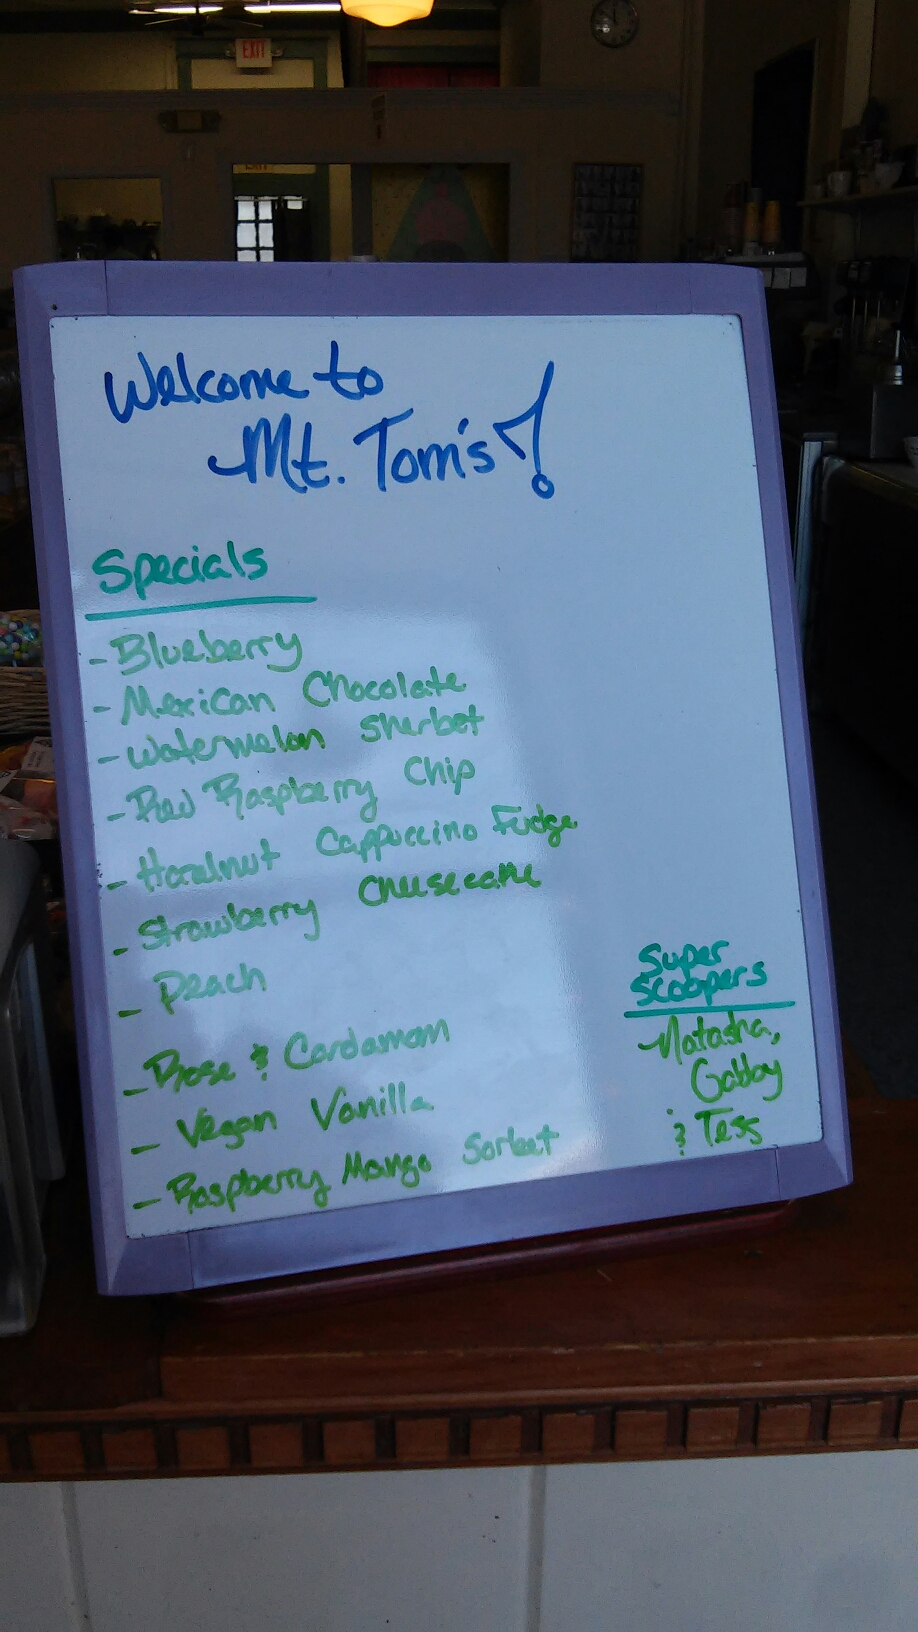 EXIT
Welcome to
Mt. Tom's!
Specials
- Blueberry
- Mexican Chocolate
- Watermelon Sherbet
- Red Raspberry Chip
- Hazelnut Cappuccino Fudge
- Strawberry Cheesecake
- Peach
- Rose & Cardamom
- Vegan Vanilla
- Raspberry Mango Sorbet
Super
Scoopers
Natasha,
Gabby
& Tess